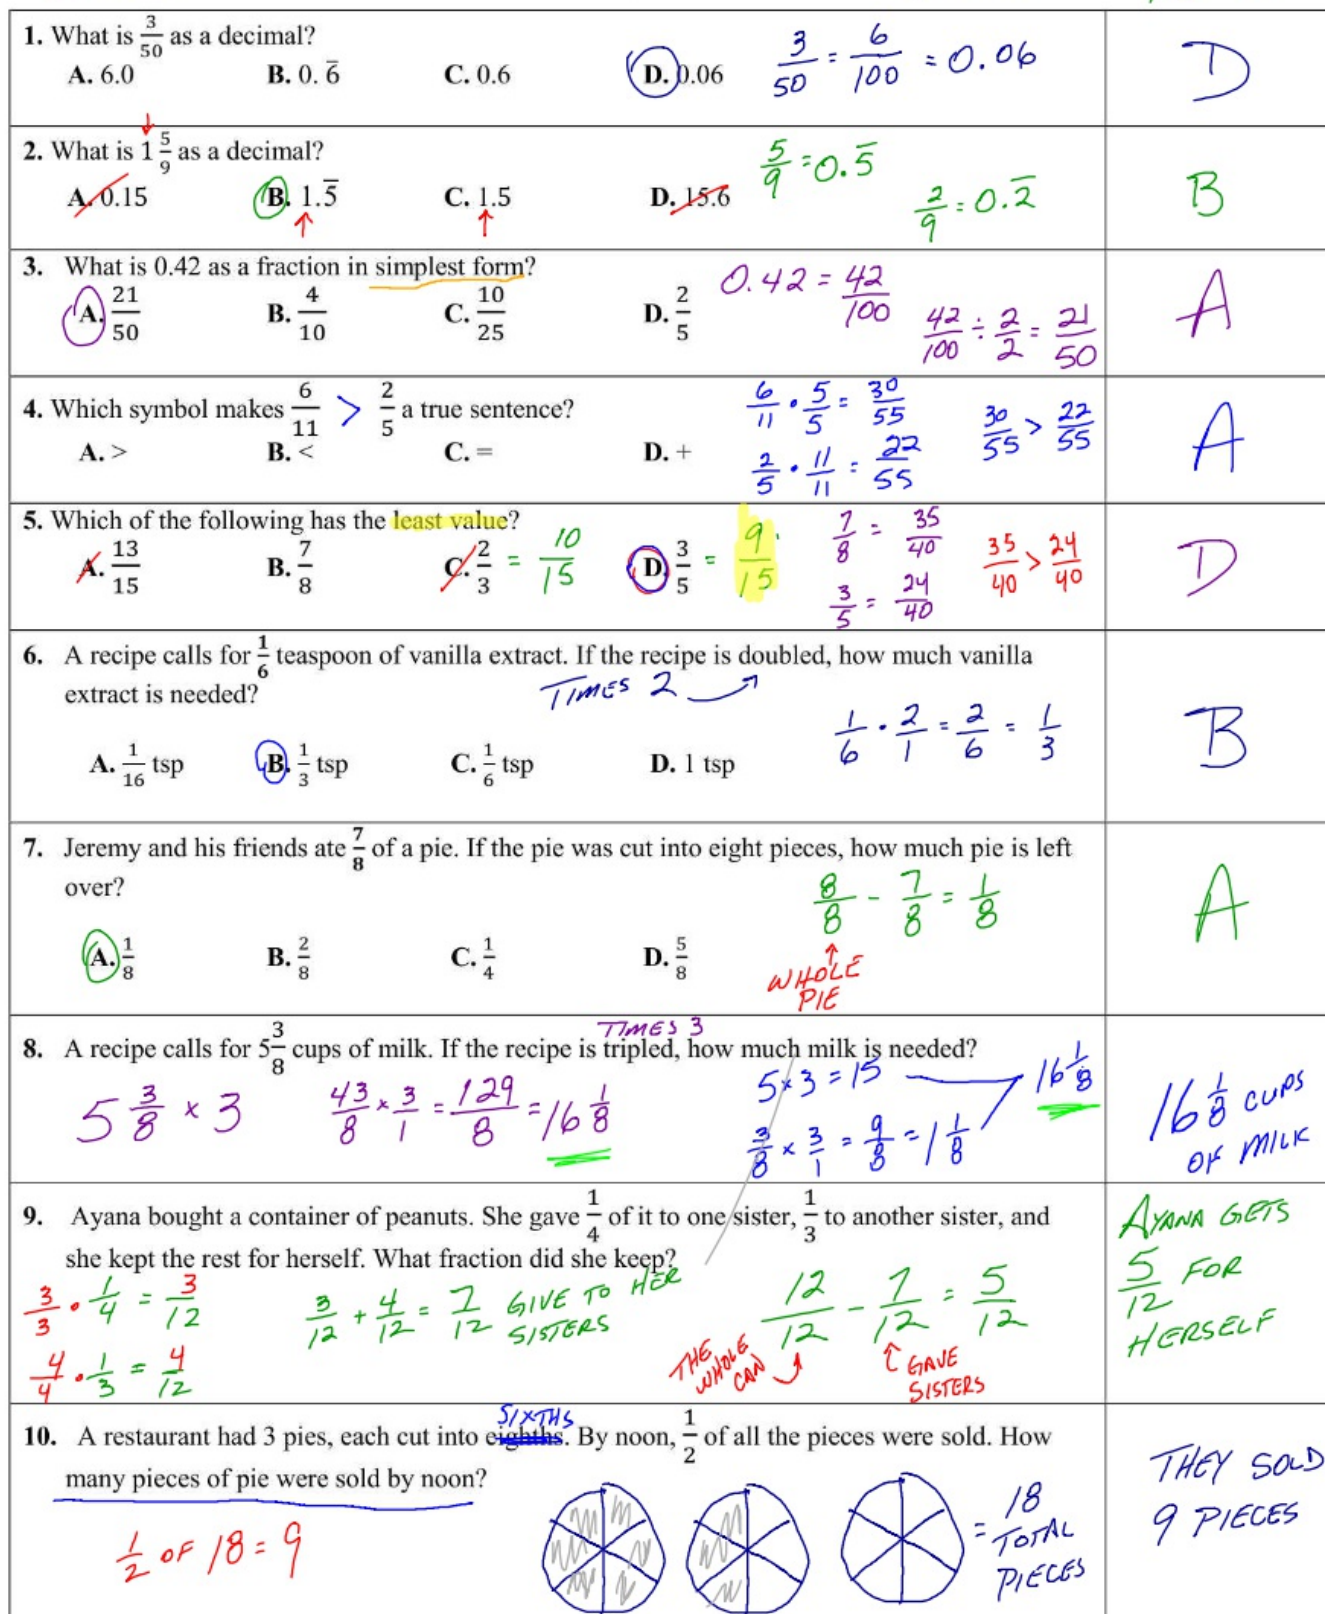 1. What is 3/50 as a decimal?
A. 6.0 B. 0.6̅ C. 0.6 D. 0.06
3/50 = 6/100 = 0.06
D
2. What is 1 5/9 as a decimal?
A. 0.15 B. 1.5̅ C. 1.5 D. 15.6
5/9 = 0.5̅
2/9 = 0.2̅
B
3. What is 0.42 as a fraction in simplest form?
A. 21/50 B. 4/10 C. 10/25 D. 2/5
0.42 = 42/100
42/100 ÷ 2/2 = 21/50
A
4. Which symbol makes 6/11 > 2/5 a true sentence?
A. > B. < C. = D. +
6/11 · 5/5 = 30/55
2/5 · 11/11 = 22/55
30/55 > 22/55
A
5. Which of the following has the least value?
A. 13/15 B. 7/8 C. 2/3 = 10/15 D. 3/5 = 9/15
7/8 = 35/40
3/5 = 24/40
35/40 > 24/40
D
6. A recipe calls for 1/6 teaspoon of vanilla extract. If the recipe is doubled, how much vanilla
extract is needed?
TIMES 2
A. 1/16 tsp B. 1/3 tsp C. 1/6 tsp D. 1 tsp
1/6 · 2/1 = 2/6 = 1/3
B
7. Jeremy and his friends ate 7/8 of a pie. If the pie was cut into eight pieces, how much pie is left
over?
8/8 - 7/8 = 1/8
A. 1/8 B. 2/8 C. 1/4 D. 5/8
WHOLE
PIE
A
TIMES 3
8. A recipe calls for 5 3/8 cups of milk. If the recipe is tripled, how much milk is needed?
5 3/8 × 3
43/8 × 3/1 = 129/8 = 16 1/8
5 × 3 = 15
3/8 × 3/1 = 9/8 = 1 1/8
16 1/8
16 1/8 CUPS
OF MILK
9. Ayana bought a container of peanuts. She gave 1/4 of it to one sister, 1/3 to another sister, and
she kept the rest for herself. What fraction did she keep?
3/3 · 1/4 = 3/12
4/4 · 1/3 = 4/12
3/12 + 4/12 = 7/12 GIVE TO HER
SISTERS
12/12 - 7/12 = 5/12
THE
WHOLE
CAN
GAVE
SISTERS
AYANA GETS
5/12 FOR
HERSELF
SIXTHS
10. A restaurant had 3 pies, each cut into eighths. By noon, 1/2 of all the pieces were sold. How
many pieces of pie were sold by noon?
1/2 OF 18 = 9
= 18
TOTAL
PIECES
THEY SOLD
9 PIECES